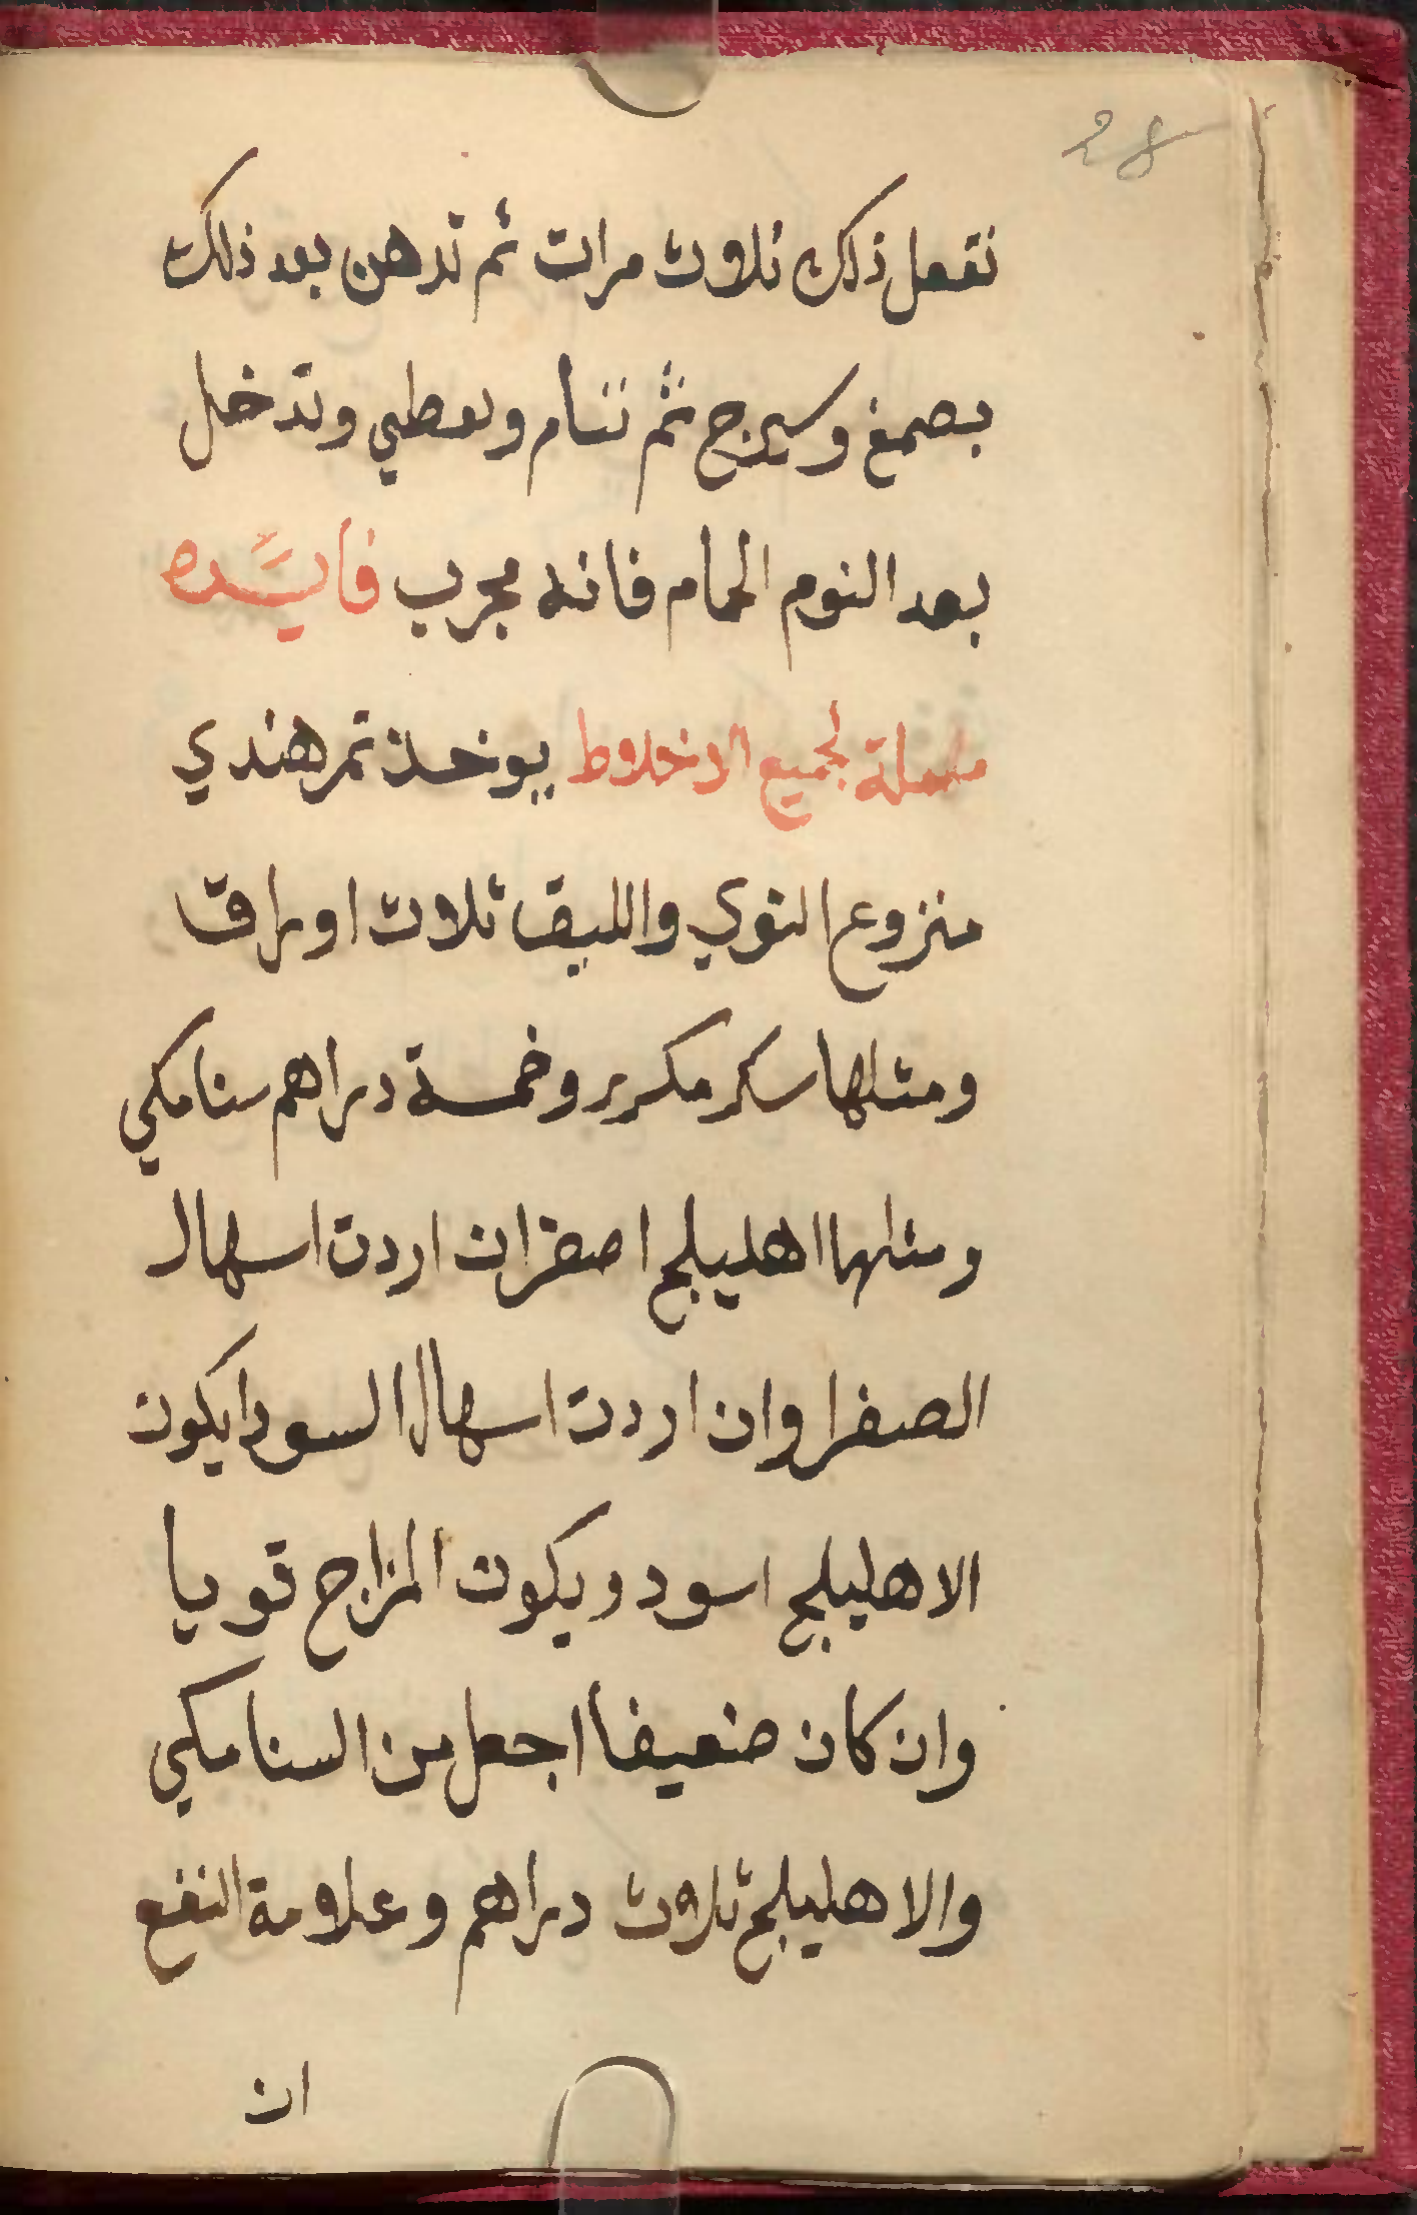 28
تفعل ذلك ثلاث مرات ثم تدهن بعد ذلك
بصمغ وسيرج ثم تنام وتعطي وتدخل
بعد النوم الحمام فانه مجرب فايده
مسهلة لجميع الاخلاط يوخذ تمر هندي
منزوع النوي والليف ثلاث اوراق
ومثلها سكر مكرر وخمسة دراهم سنامكي
ومثلها اهليلج اصفر ان اردت اسهال
الصفرا وان اردت اسهال السودا يكون
الاهليلج اسود ويكون المزاج قويا
وان كان ضعيفا اجعل من السنامكي
والاهليلج ثلاث دراهم وعلامة النفع
ان